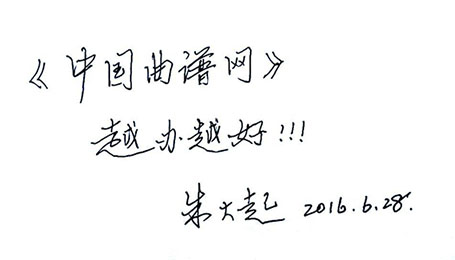 《中国曲谱网》
越办越好!!!
朱大起 2016.6.28.